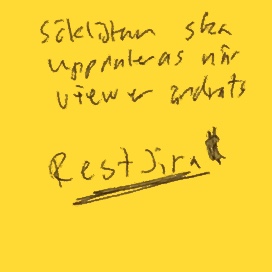 Söklistan ska
uppdateras när
viewer ändrats
RestJira